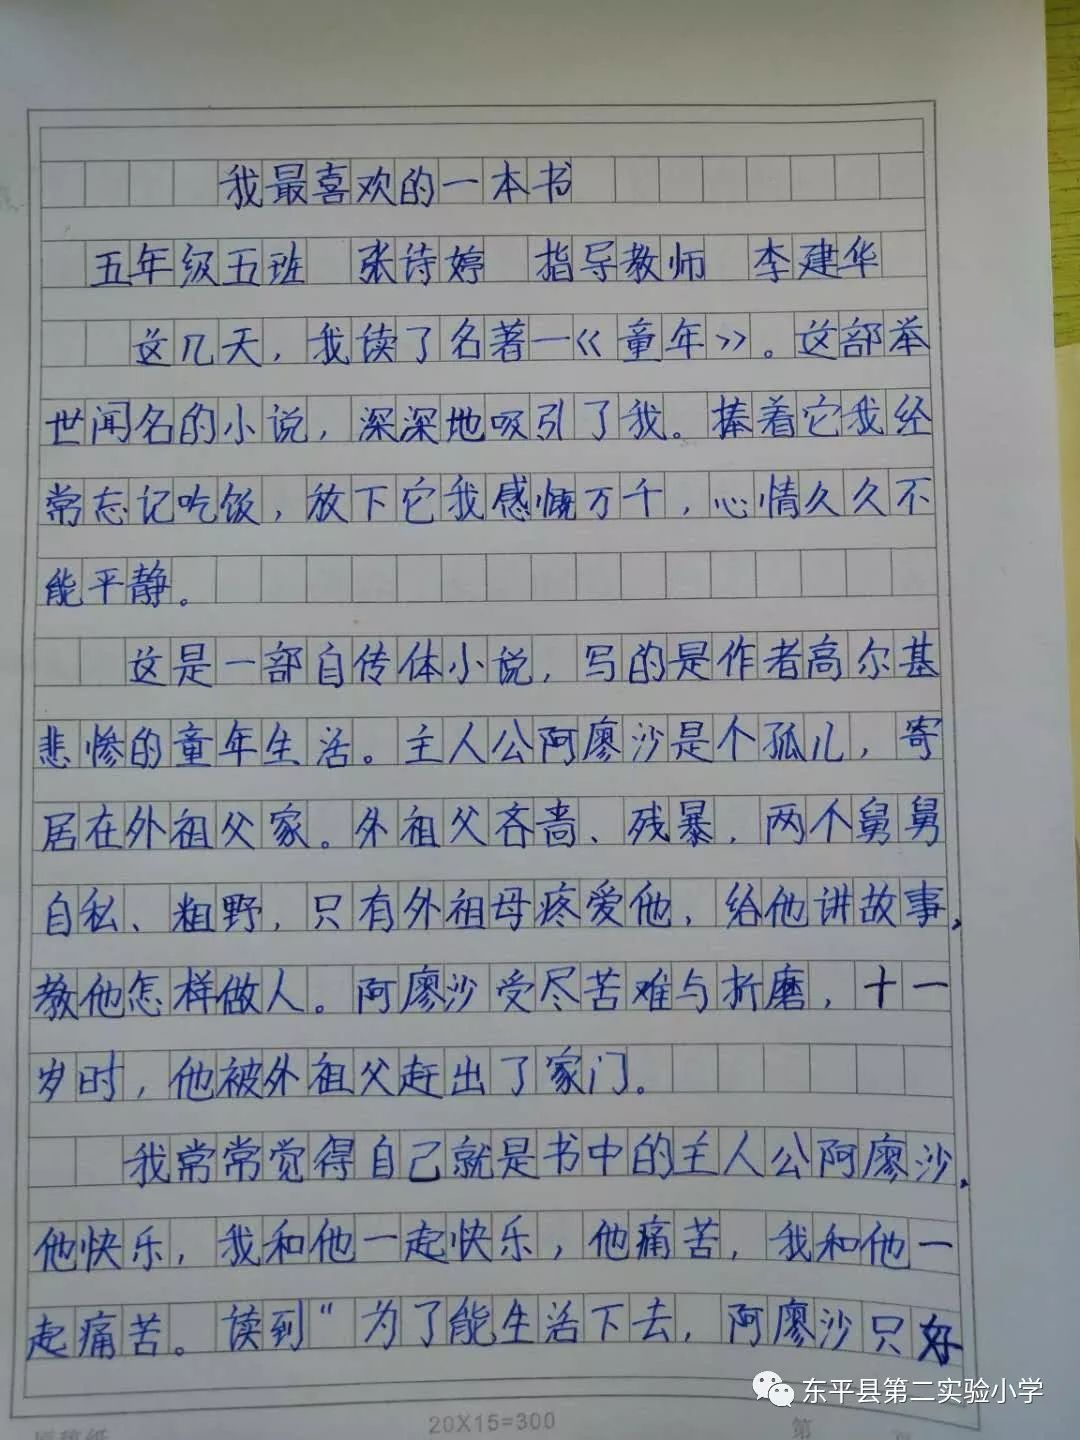 我最喜欢的一本书
五年级五班 张诗婷 指导教师 李建华
这几天，我读了名著一《童年》。这部举
世闻名的小说，深深地吸引了我。捧着它我经
常忘记吃饭，放下它我感慨万千，心情久久不
能平静。
这是一部自传体小说，写的是作者高尔基
悲惨的童年生活。主人公阿廖沙是个孤儿，寄
居在外祖父家。外祖父吝啬、残暴，两个舅舅
自私、粗野，只有外祖母疼爱他，给他讲故事，
教他怎样做人。阿廖沙受尽苦难与折磨，十一
岁时，他被外祖父赶出了家门。
我常常觉得自己就是书中的主人公阿廖沙.
他快乐，我和他一起快乐，他痛苦，我和他一
起痛苦。读到“为了能生活下去，阿廖沙只好
东平县第二实验小学
20X15=300
第